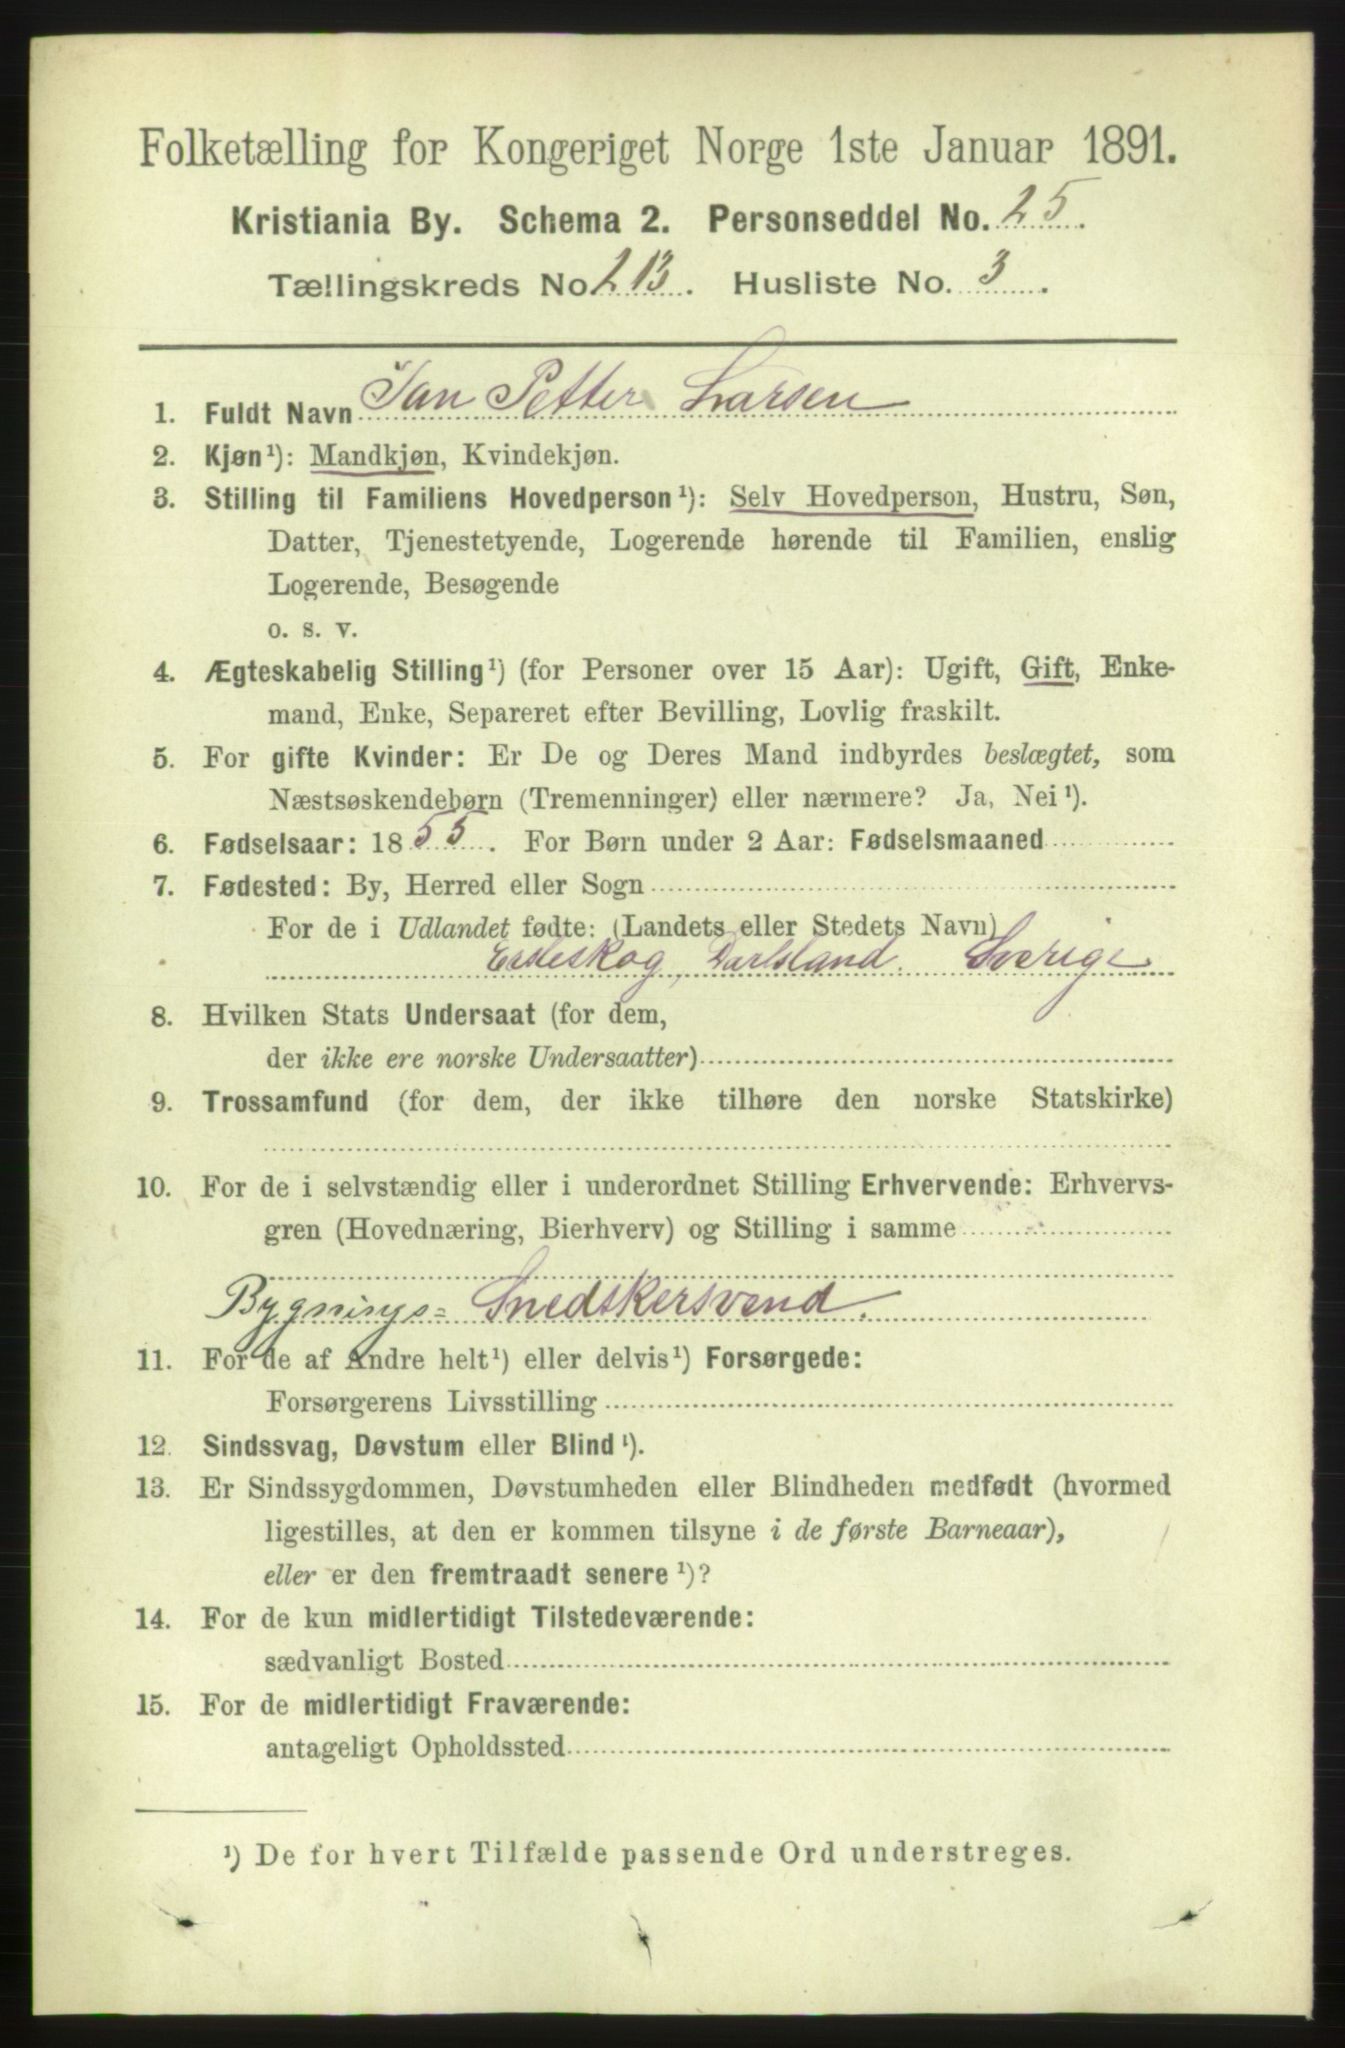 Folketælling for Kongeriget Norge 1ste Januar 1891.
Kristiania By. Schema 2. Personseddel No. 25.
Tællingskreds No 213. Husliste No. 3.
1. Fuldt Navn Jan Petter Larsen
2. Kjøn¹): Mandkjøn, Kvindekjøn.
3. Stilling til Familiens Hovedperson¹): Selv Hovedperson, Hustru, Søn,
Datter, Tjenestetyende, Logerende hørende til Familien, enslig
Logerende, Besøgende
o. s. v.
4. Ægteskabelig Stilling¹) (for Personer over 15 Aar): Ugift, Gift, Enke-
mand, Enke, Separeret efter Bevilling, Lovlig fraskilt.
5. For gifte Kvinder: Er De og Deres Mand indbyrdes beslægtet, som
Næstsøskendebørn (Tremenninger) eller nærmere? Ja, Nei¹).
6. Fødselsaar: 1855. For Børn under 2 Aar: Fødselsmaaned
7. Fødested: By, Herred eller Sogn
For de i Udlandet fødte: (Landets eller Stedets Navn)
Darlsland. Sverige
8. Hvilken Stats Undersaat (for dem,
der ikke ere norske Undersaatter)
9. Trossamfund (for dem, der ikke tilhøre den norske Statskirke)
10. For de i selvstændig eller i underordnet Stilling Erhvervende: Erhvervs-
gren (Hovednæring, Bierhverv) og Stilling i samme
Bygnings= Snedskersvend.
11. For de af Andre helt¹) eller delvis¹) Forsørgede:
Forsørgerens Livsstilling
12. Sindssvag, Døvstum eller Blind¹).
13. Er Sindssygdommen, Døvstumheden eller Blindheden medfødt (hvormed
ligestilles, at den er kommen tilsyne i de første Barneaar),
eller er den fremtraadt senere¹)?
14. For de kun midlertidigt Tilstedeværende:
sædvanligt Bosted
15. For de midlertidigt Fraværende:
antageligt Opholdssted
¹) De for hvert Tilfælde passende Ord understreges.